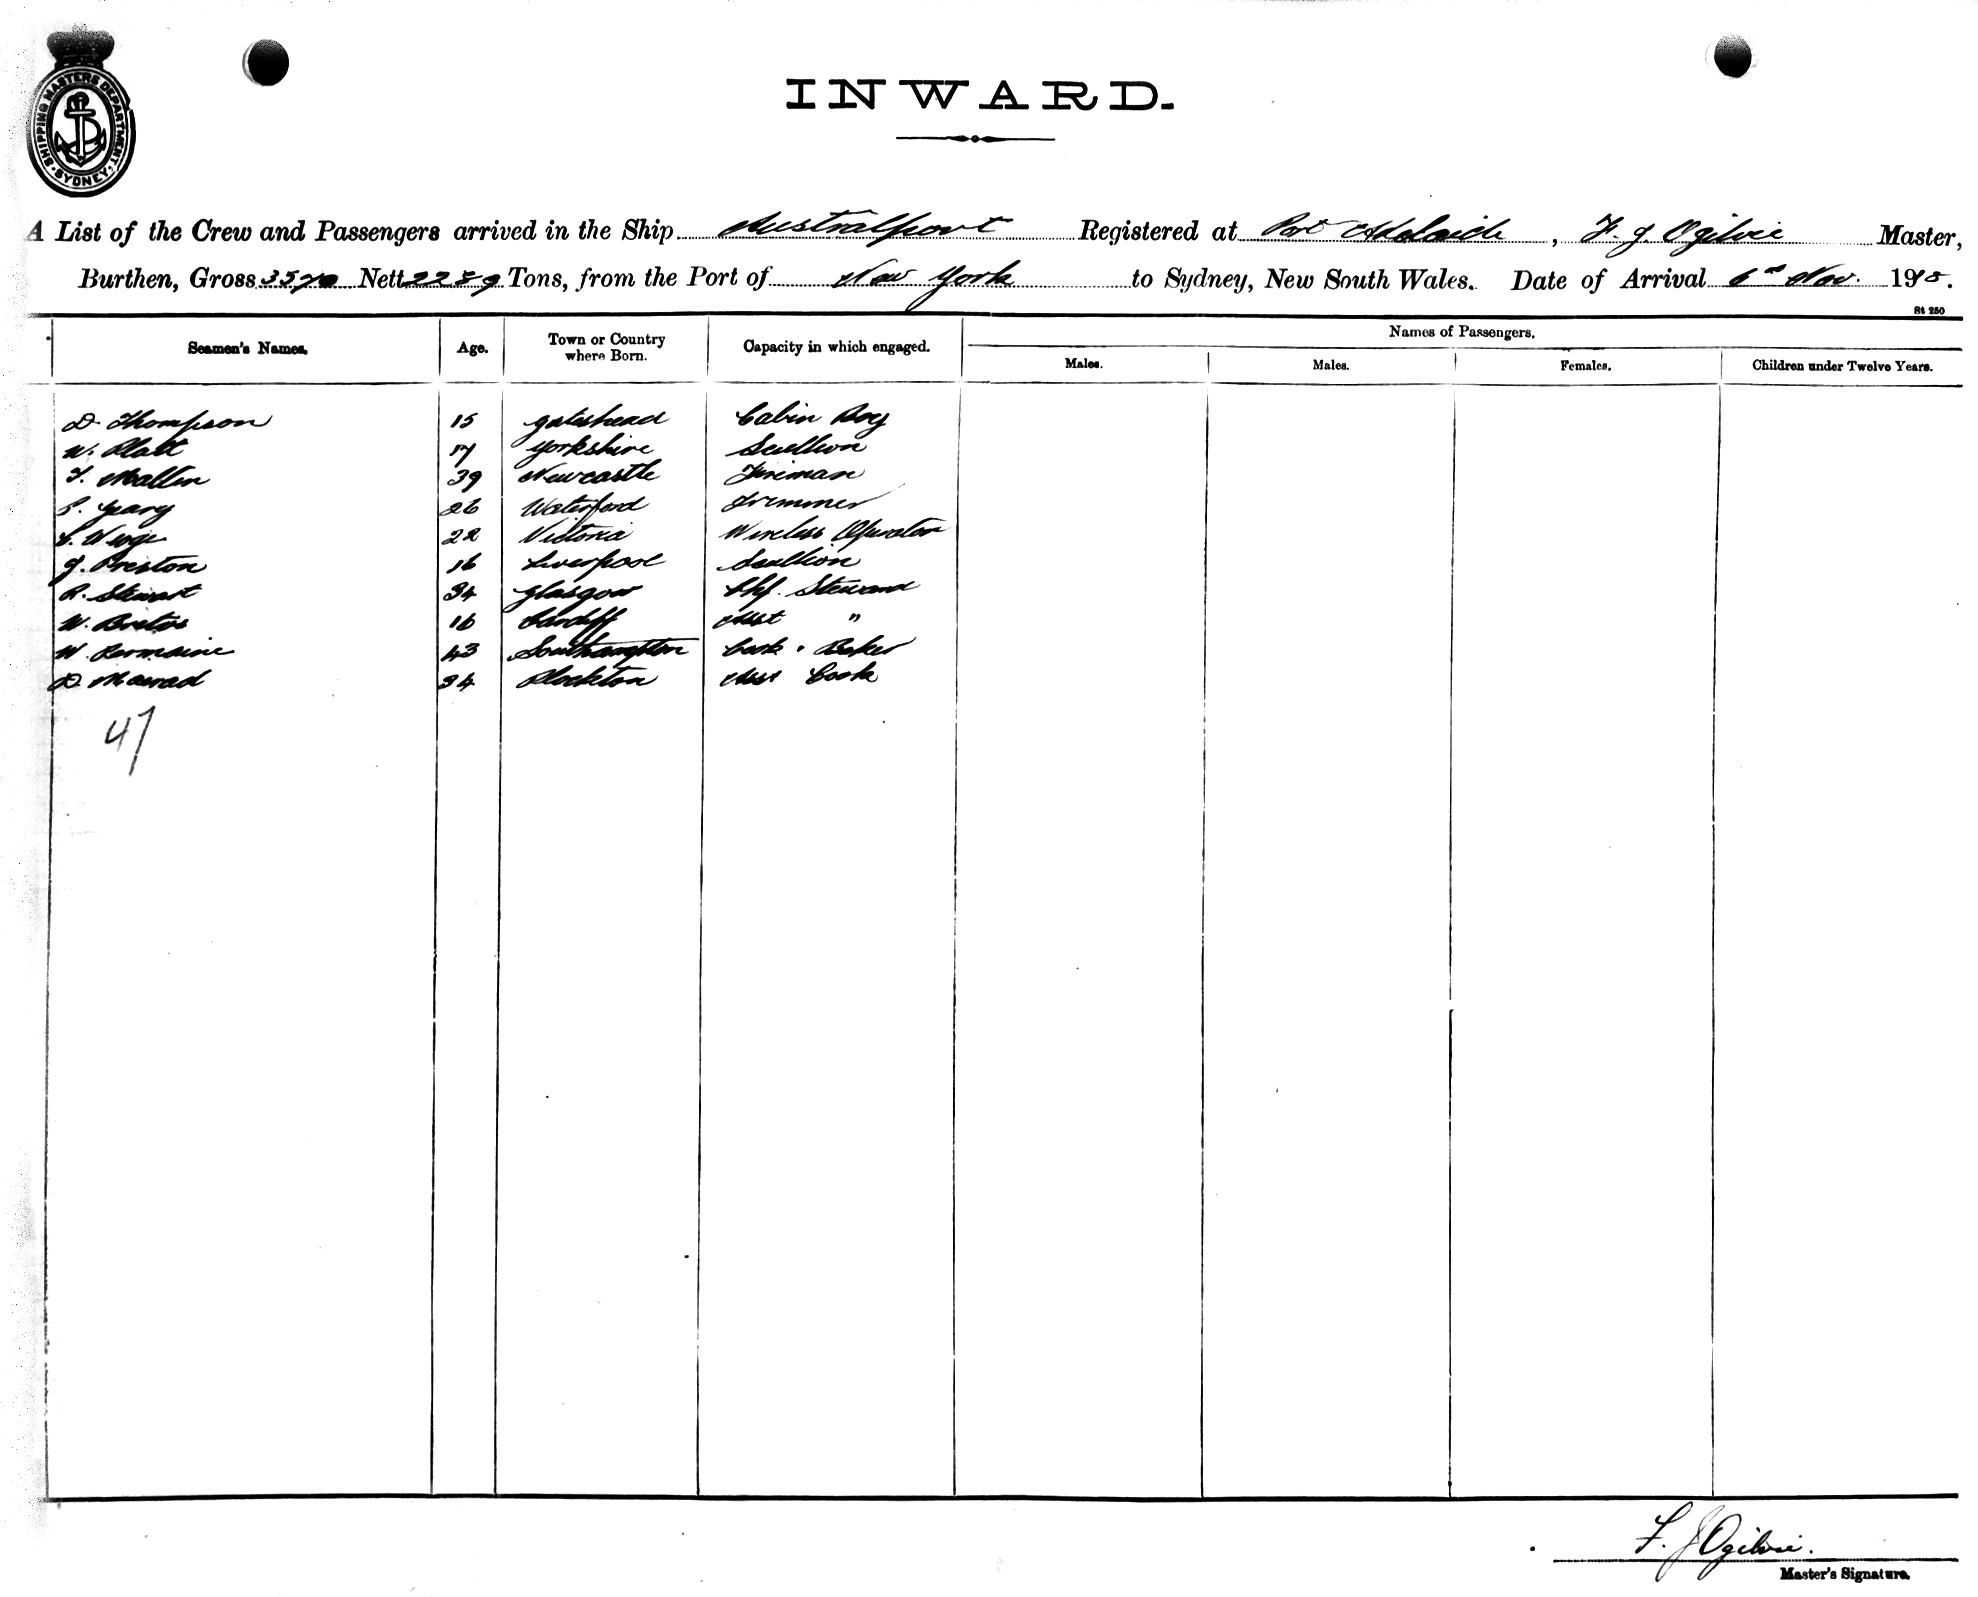 SHIPPING MASTERS DEPARTMENT
SYDNEY
INWARD.
A List of the Crew and Passengers arrived in the Ship Australport Registered at Port Adelaide, F. J. Ogilvie Master,
Burthen, Gross 3570 Nett 2289 Tons, from the Port of New York to Sydney, New South Wales. Date of Arrival 6th Nov. 1918.
St 250
Seamen's Names. Age. Town or Country where Born. Capacity in which engaged. Names of Passengers.
Males. Males. Females. Children under Twelve Years.
D. Thompson 15 Gateshead Cabin Boy
W. Platt 17 Yorkshire Scullion
T. Mallin 39 Newcastle Fireman
Geary 26 Waterford Trimmer
22 Victoria Wireless Operator
J. Preston 16 Liverpool Scullion
R. Stewart 34 Glasgow Chf. Steward
W. 16 Cardiff Asst "
W. 43 Southampton Cook & Baker
D. 34 Asst Cook
47
F. J Ogilvie.
Master's Signature.